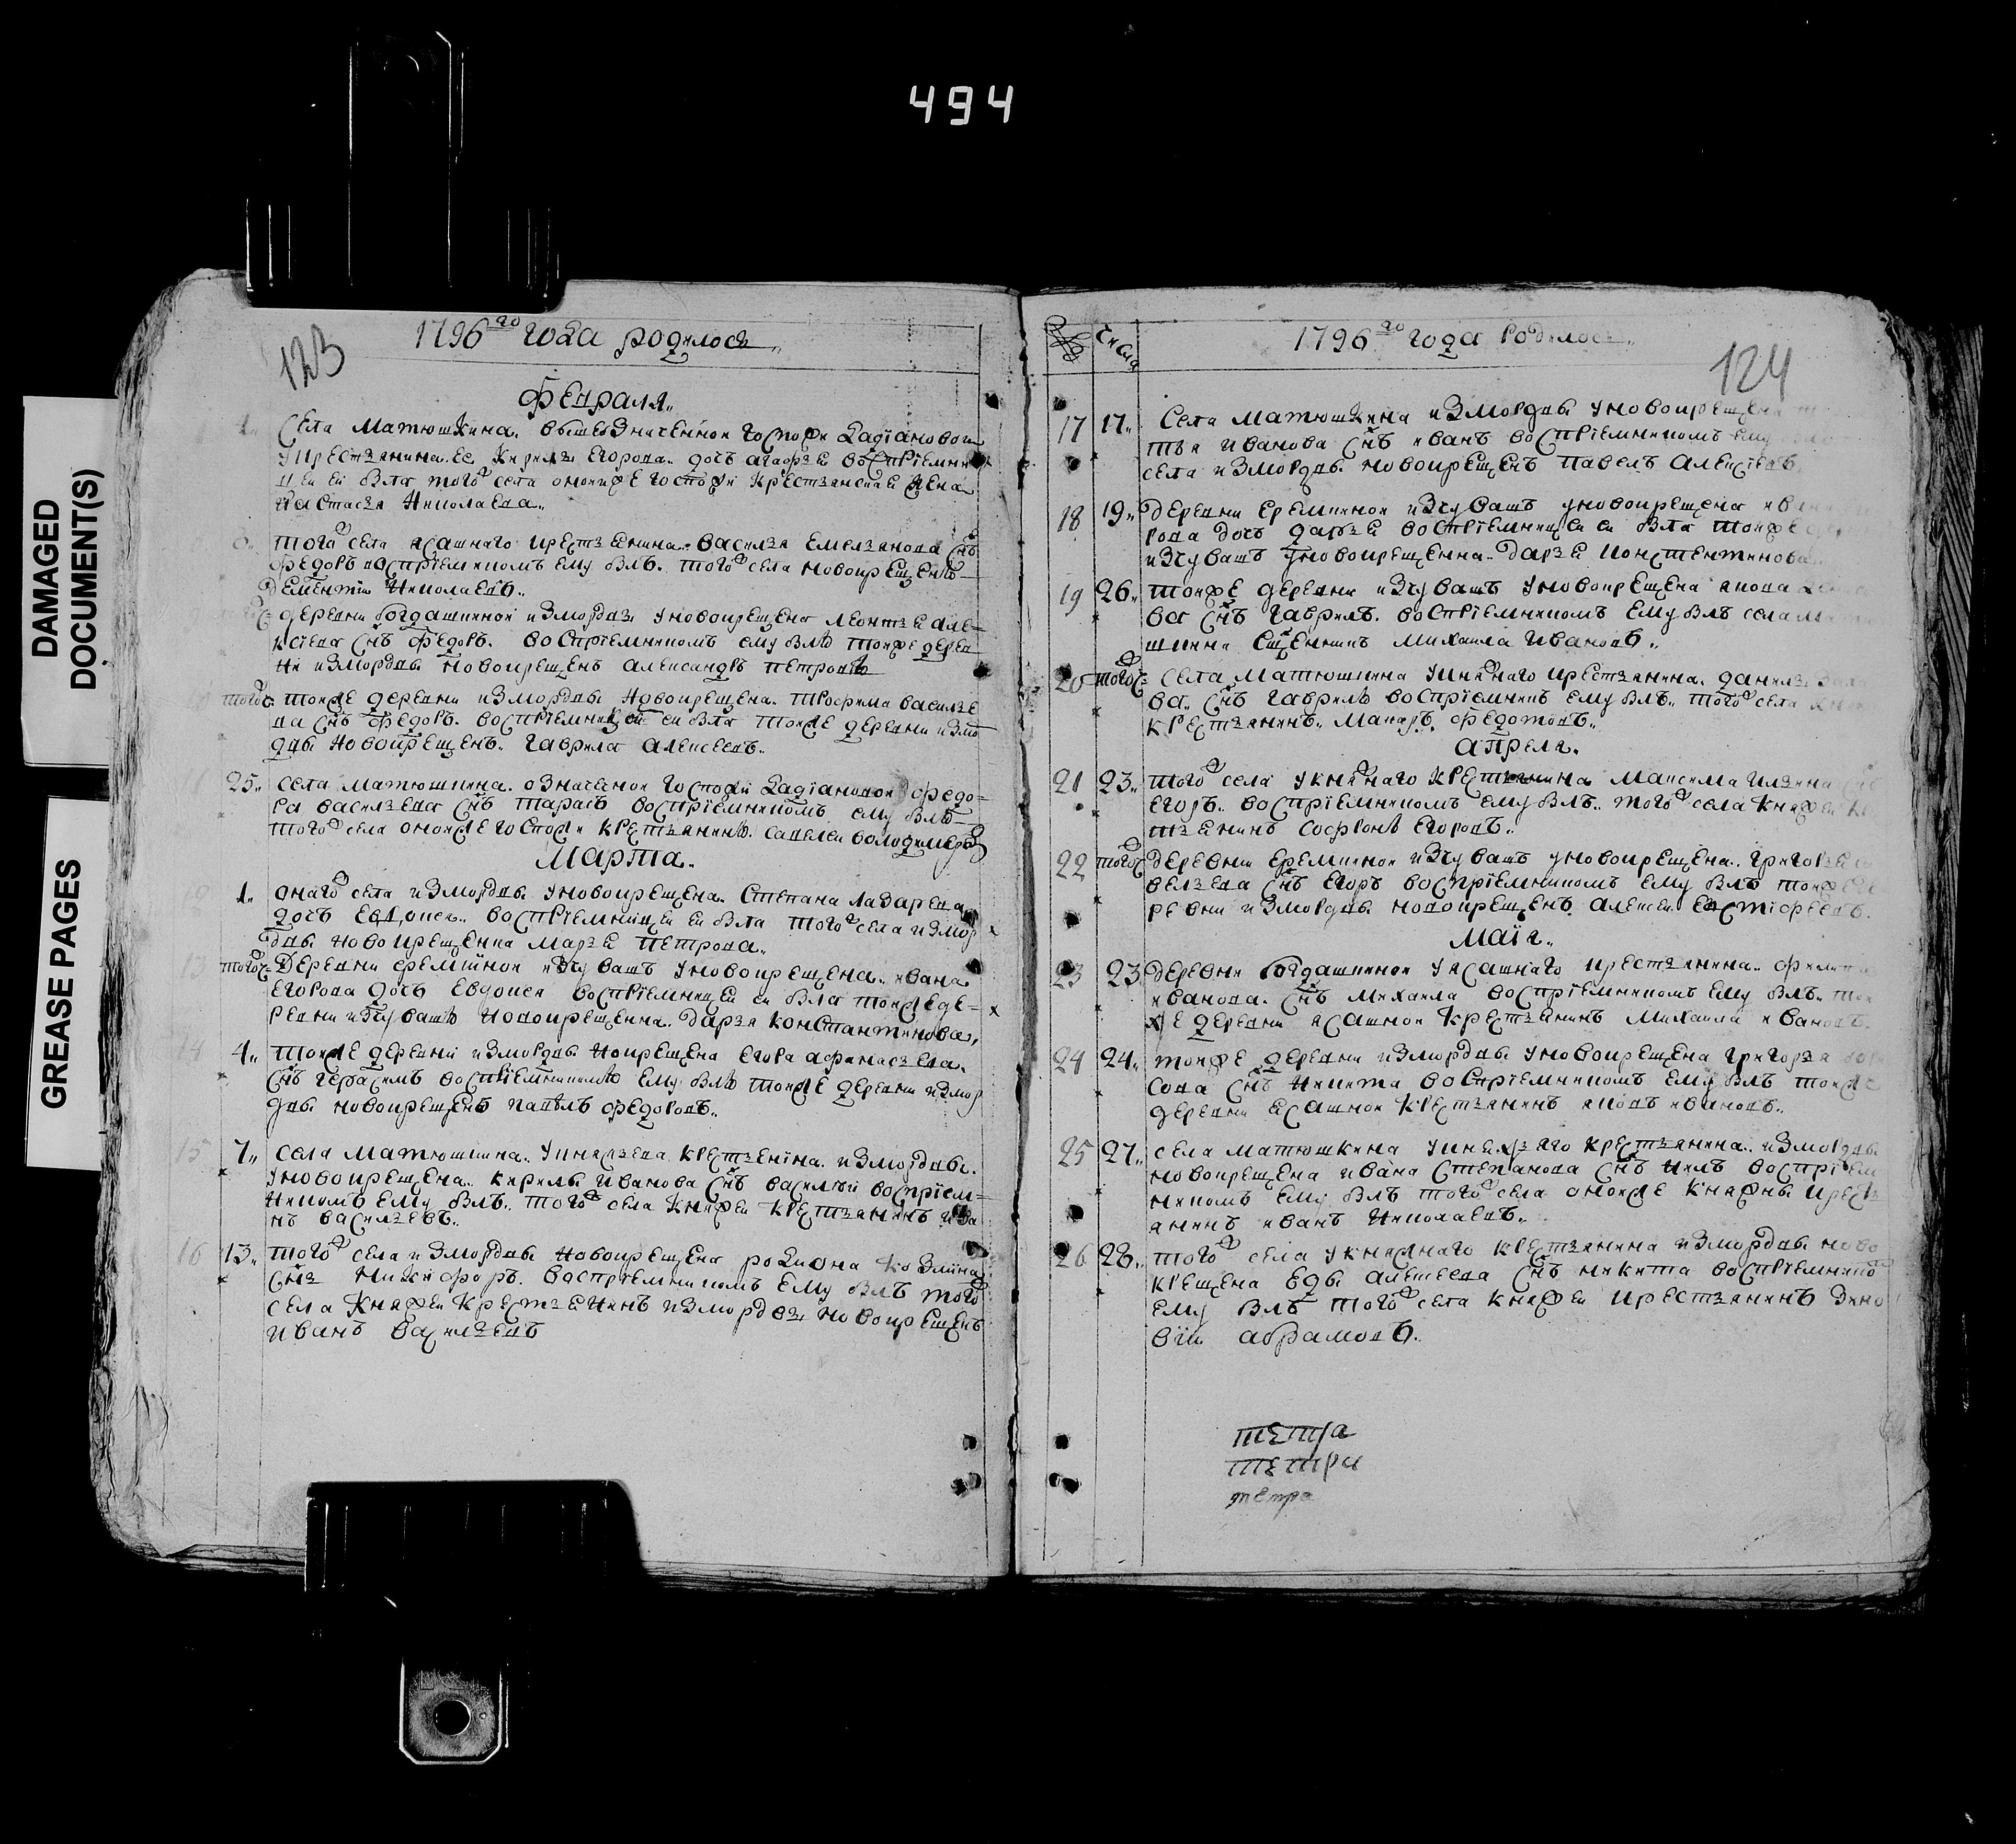 494
DAMAGED
DOCUMENT(S)
GREASE PAGES
123
1796го года родилося
Февраля
села Матюшкина вышеозначенной госпожи Радiановой
крестьянина Кирилы Егорова дочь агафья восприемни
цей ей была того села оной же госпожи крестьянская жена
Настасья Николаева
того села ясашнаго крестьянина василья емельянова снъ
Федоръ восприемникомъ ему былъ того села новокрещенъ
Дементiи Николаевъ
деревни Богдашкиной измордвы уновокрещена леонтья але=
ксѣева снъ Федоръ восприемникомъ ему былъ тойже дерев
ни измордвы новокрещенъ александръ петровъ
того ч тойже деревни измордвы новокрещена трофима василье
ва снъ Федоръ тойже деревни измо
рдвы новокрещенъ гаврила алексеевъ
25 села матюшкина означеной госпожи Радiановой федо=
ра васильева снъ тарасъ восприемникомъ ему былъ
того села оной же госпожи крестьянинъ савелей володимеръ
Марта
1 онаго села измордвы уновокрещена степана лазарева
дочь Евдокея восприемницей ей была того села измор
двы новокрещенка марья петрова
13 того ч деревни еремкиной изчувашъ уновокрещена ивана
егорова дочь Евдокея восприемницей ей была тойже де=
ревни изчувашъ новокрещенка дарья константинова
14 4 тойже деревни измордвы нокрещена егора афанасьева
снъ герасимъ восприемникомъ ему былъ тойже деревни измор
двы новокрещенъ павелъ федоровъ
15 7 села матюшкина укняжева крестьянина измордвы
уновокрещена кирилы иванова снъ василѣй восприем=
никомъ ему былъ того села княжей крестьянинъ ива
нъ васильевъ
16 13 того села измордвы новокрещена родиона козмина
снъ никифоръ восприемникомъ ему былъ того
села княжей крестьянинъ измордвы новокрещенъ
иванъ васильевъ
числа
1796го года родилося
124
17 17 села матюшкина измордвы уновокрещена
иванова снъ иванъ восприемникомъ ему
села измордвы новокрещенъ павелъ алексѣевъ
18 19 деревни еремкиной изчувашъ уновокрещена ивана
рова дочь дарья восприемницей ей была тойже
изчувашъ уновокрещенка дарья константинова
19 26 тойже деревни изчувашъ уновокрещена якова
ва снъ гаврилъ восприемникомъ ему былъ села матю
шкина сщенникъ михаила ивановъ
20 того ч села матюшкина укняжаго крестьянина данилы
ва снъ гаврилъ восприемникъ ему былъ того села
крестьянинъ макаръ федотовъ
апреля
21 23 того села укняжаго крестьянина максима ильина
егоръ восприемникомъ ему былъ того села княжей
тьянинъ софронъ егоровъ
22 того ч деревни еремкиной изчувашъ уновокрещена григорья
вельева снъ егоръ восприемникомъ ему былъ тойже де
ревни измордвы новокрещенъ алексей
маiя
23 23 деревни Богдашкиной уясашнаго крестьянина филипа
иванова снъ михаила восприемникомъ ему былъ той
же деревни ясашной крестьянинъ михаила ивановъ
24 24 тойже деревни измордвы уновокрещена григорья
сова снъ никита восприемникомъ ему былъ тойже
деревни ясашной крестьянинъ яковъ ивановъ
25 27 села матюшкина укняжьяго крестьянина измордвы
новокрещена ивана степанова снъ нилъ восприем
никомъ ему былъ того села онойже княжны кресть
янинъ иванъ николаевъ
26 28 того села укняжнаго крестьянина измордвы ново
крещена алексеева снъ никита восприемнико
ему былъ того села княжей крестьянинъ зино
вiи абрамовъ
тетра
тетра
тетра